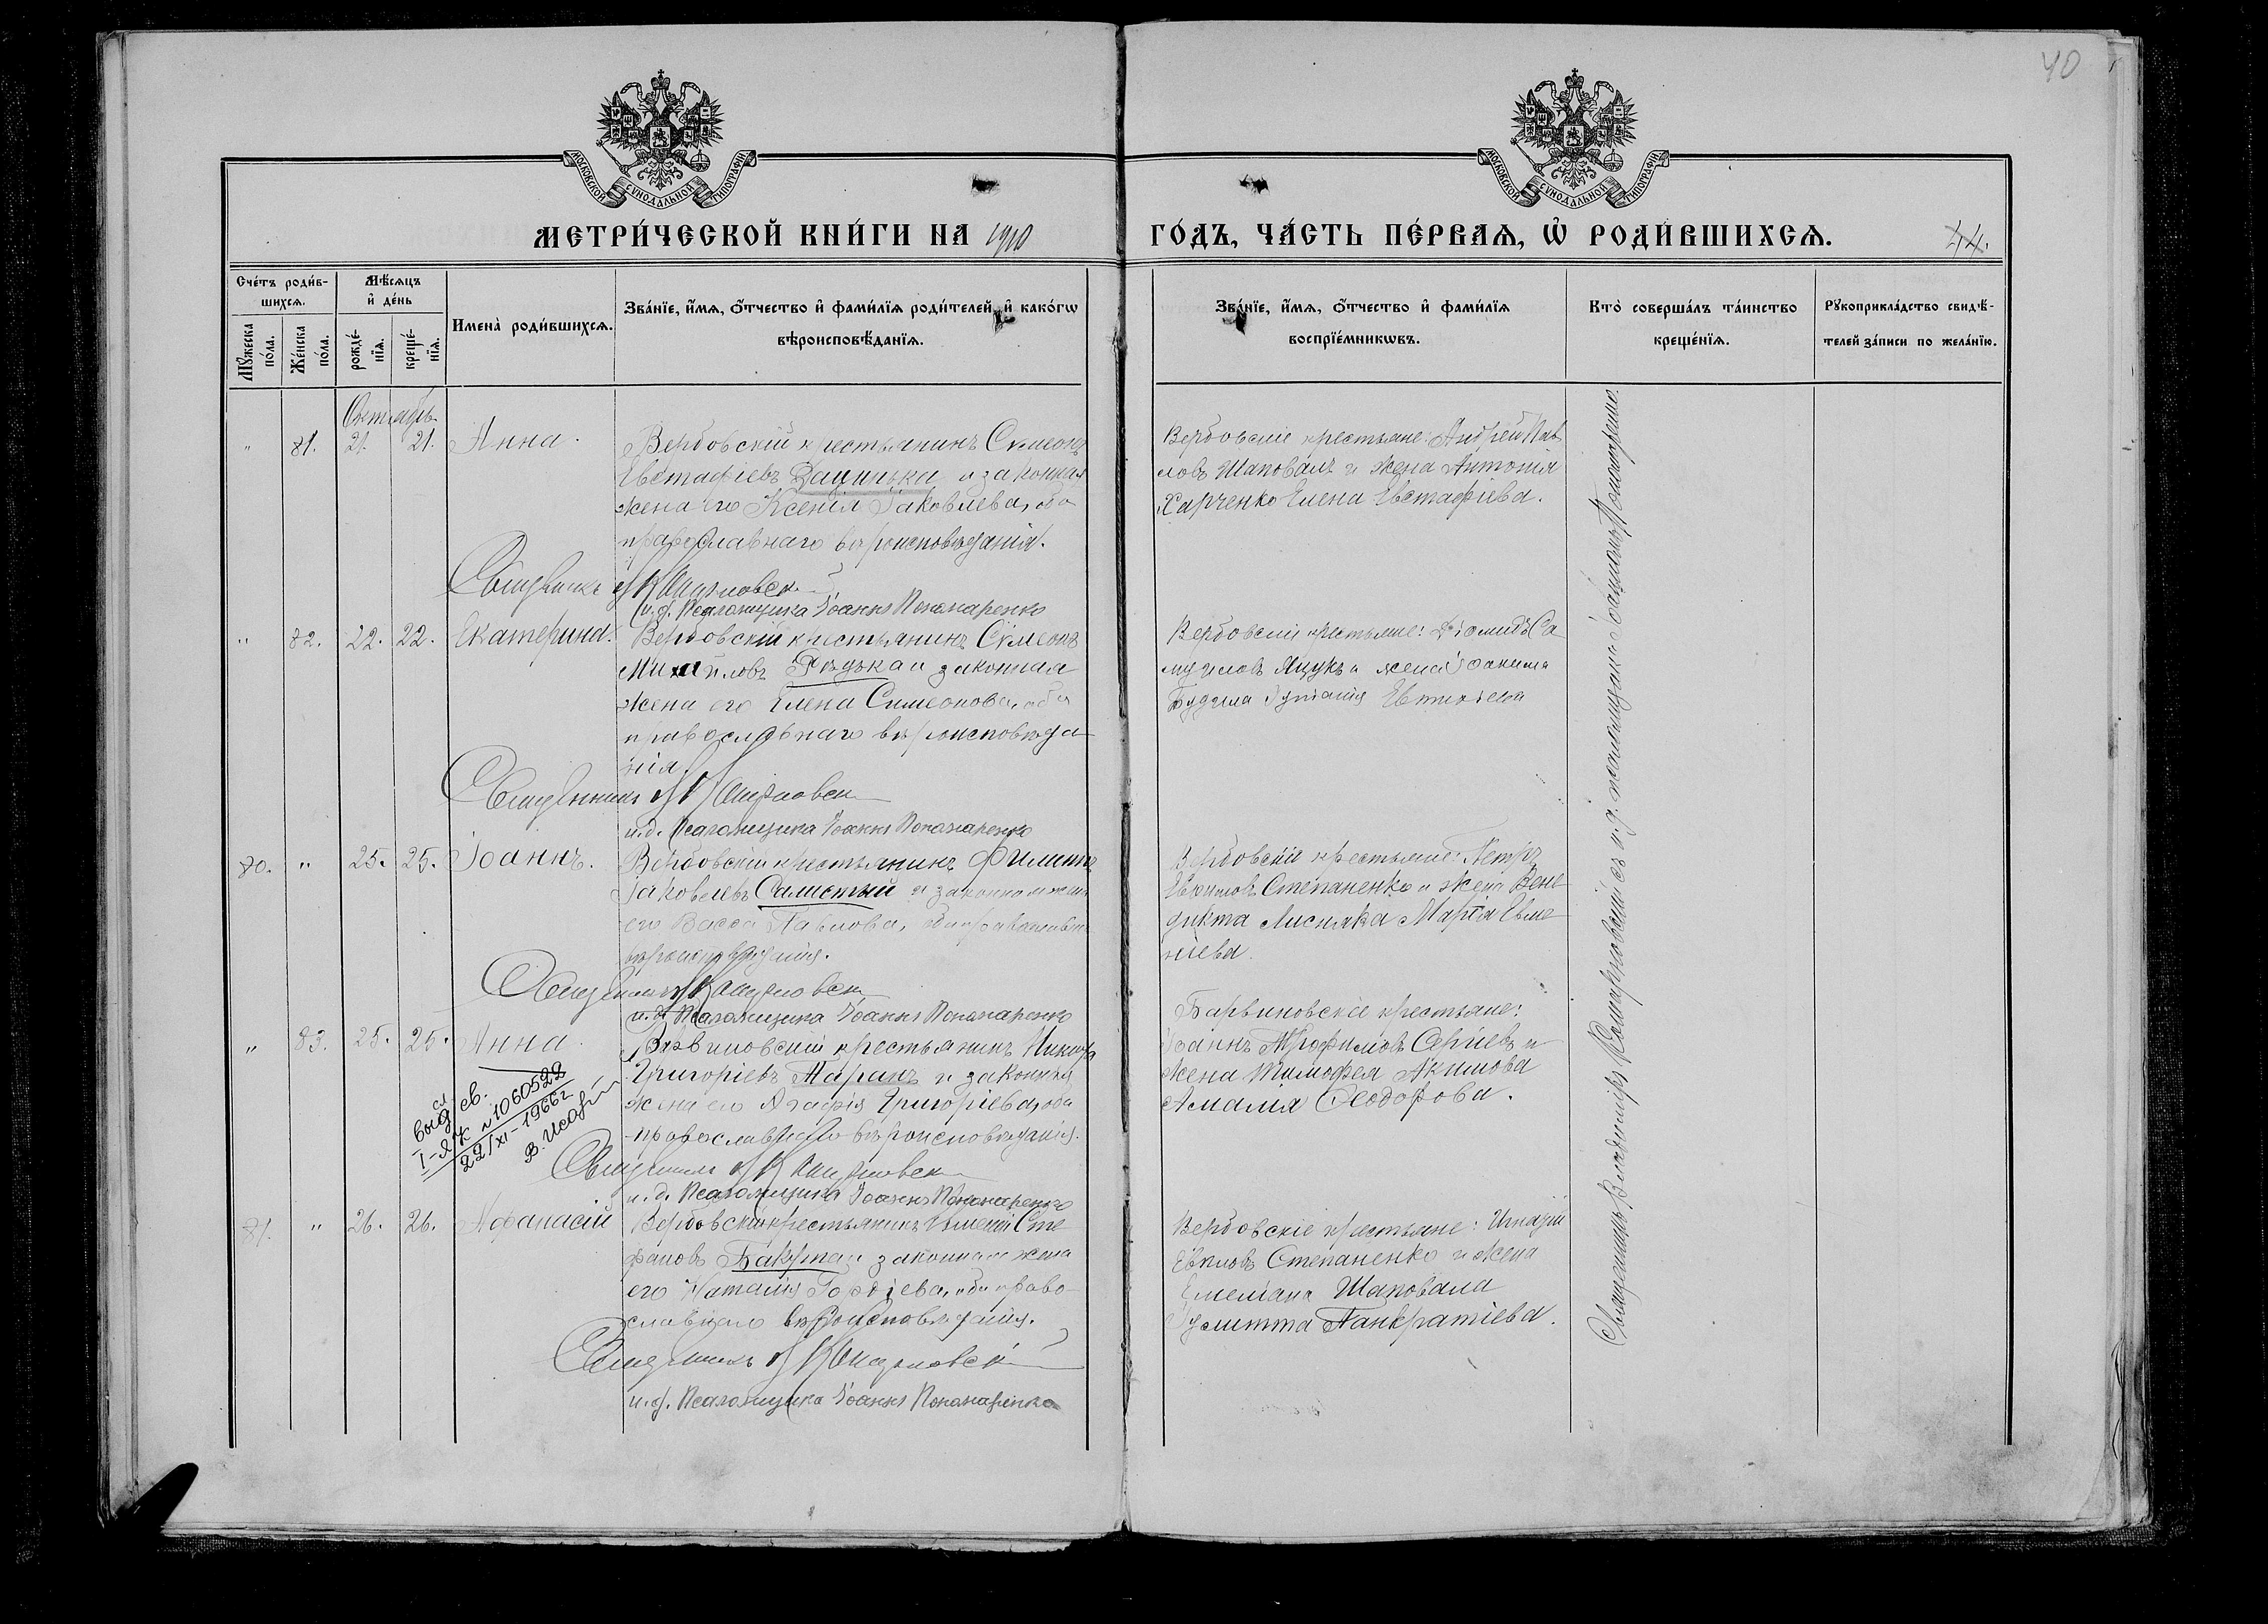 40
МОСКОВСКОЙ СѴНОДАЛЬНОЙ ТИПОГРАФІИ.
МОСКОВСКОЙ СѴНОДАЛЬНОЙ ТИПОГРАФІИ.
МЕТРИ́ЧЕСКОЙ КНИ́ГИ НА 1910
ГО́ДЪ, ЧА́СТЬ ПЕ́РВАѦ, Ѡ҆ РОДИ́ВШИХСѦ.
44.
Сче́тъ роди́в-
шихсѧ.
Мꙋ́жеска по́ла.
Же́нска по́ла.
Мѣ́сѧцъ
и҆ де́нь
рожде́-
нїѧ.
креще́-
нїѧ.
Имена̀ роди́вшихсѧ.
Зва́нїе, и҆́мѧ, ѻ҆́тчество и҆ фами́лїѧ роди́телей, и҆ како́гѡ
вѣроисповѣ́данїѧ.
Зва́нїе, и҆́мѧ, ѻ҆́тчество и҆ фами́лїѧ
воспрїе́мникѡвъ.
Кто̀ соверша́лъ та́инство
креще́нїѧ.
Рꙋкоприкла́дство свидѣ́-
телей за́писи по жела́нїю.
Октябрь
" 81. 21. 21. Анна.
Вербовскій крестьянинъ Симеонъ
Евстафіевъ и законная
жена его Ксенія Іаковлева, оба
православнаго вѣроисповѣданія.
Священникъ
и.д. Псаломщика Іоаннъ Пономаренко
Вербовскіе крестьяне: Андрей Пав
ловъ Шаповалъ и жена Антонія
Харченко Елена Евстафіева.
" 82. 22. 22. Екатерина.
Вербовскій крестьянинъ Симеонъ
Михаиловъ Рѣдька и законная
жена его Елена Симеонова, оба
православнаго вѣроисповѣда
нія.
Священникъ
и.д. Псаломщика Іоаннъ Пономаренко
Вербовскіе крестьяне: Діомидъ Са
муиловъ Яцукъ и жена Іоакима
Евтихіева
80. " 25. 25. Іоаннъ.
Вербовскій крестьянинъ Филиппъ
Іаковлевъ Самистый и законная жена
его Васса Павлова, оба православнаго
вѣроисповѣданія.
Священникъ
и.д. Псаломщика Іоаннъ Пономаренко
Вербовскіе крестьяне: Петръ
Степаненко и жена Вене
дикта Лисняка Марія Евме
ніева.
" 83. 25. 25. Анна.
Барвиновскій крестьянинъ
Григоріевъ Таранъ и законная
жена его Агафія Григоріева, оба
православнаго вѣроисповѣданія.
Священникъ
и.д. Псаломщика Іоаннъ Пономаренко
выд св.
I-ЯК №1060522
22/XI-1966г
Барвиновскіе крестьяне:
Іоаннъ Трофимовъ Сергіевъ и
жена Тимофея Акимова
Амалія Ѳеодорова.
81. " 26. 26. Афанасій
Вербовскій крестьянинъ Евменій Сте
фановъ Бакута и законная жена
его Наталія Гордіева, оба право
славнаго вѣроисповѣданія.
Священникъ
и.д. Псаломщика Іоаннъ Пономаренко
Вербовскіе крестьяне: Игнатій
Степаненко и жена
Емеліана Шаповала
Іулитта Панкратіева.
Священникъ Владиміръ съ и.д. псаломщика Іоанномъ Пономаренко.